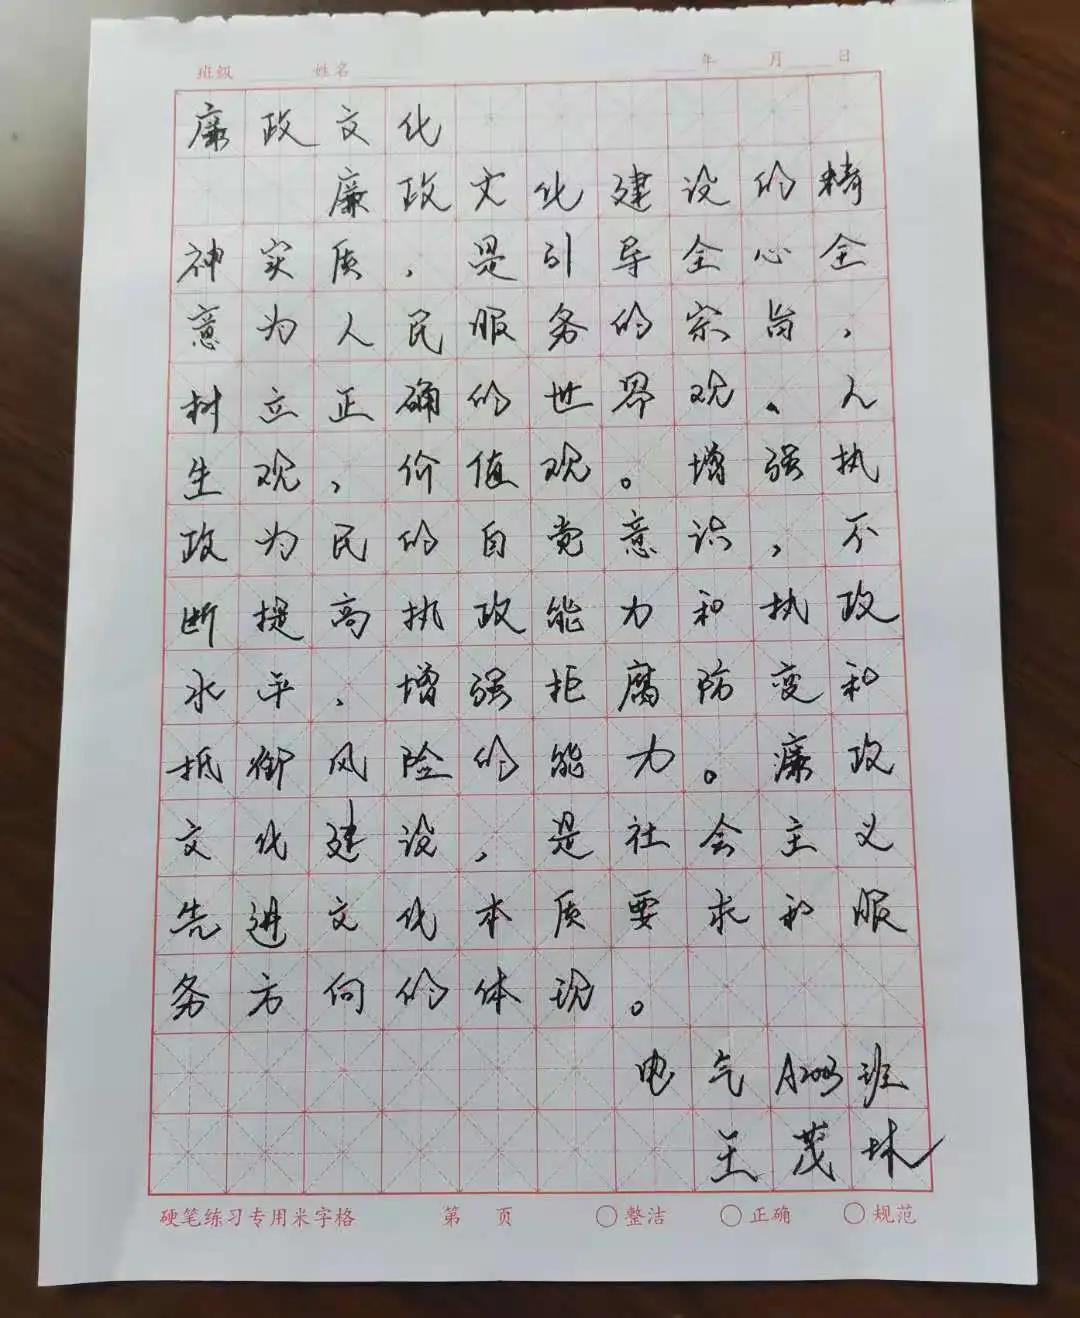 班级 姓名 年 月 日
廉政文化
廉政文化建设的精
神实质，是引导全心全
意为人民服务的宗旨，
树立正确的世界观、人
生观，价值观。增强执
政为民的自觉意识，不
断提高执政能力和执政
水平、增强拒腐防变和
抵御风险的能力。廉政
文化建设，是社会主义
先进文化本质要求和服
务方向的体现。
电气A2003班
王茂林
硬笔练习专用米字格 第 页 整洁 正确 规范